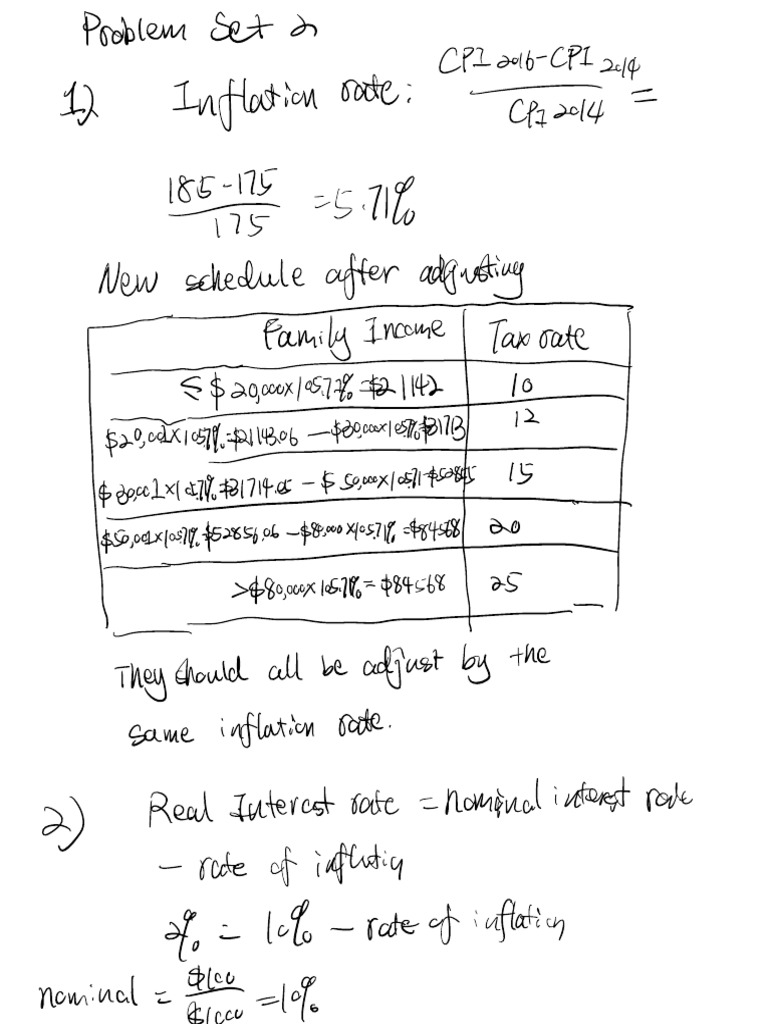 Problem Set 2
1) Inflation rate: CPI 2016 - CPI 2014 / CPI 2014 =
185 - 175 / 175 = 5.71%
New schedule after adjusting
Family Income | Tax rate
≤ $20,000 × 105.71% = $21142 | 10
$20,001 × 105.71% = $21143.06 - $30,000 × 105.71% = $31713 | 12
$30,001 × 105.71% = $31714.05 - $50,000 × 105.71 = $52855 | 15
$50,001 × 105.71% = $52856.06 - $80,000 × 105.71% = $84568 | 20
> $80,000 × 105.71% = $84568 | 25
They should all be adjust by the
same inflation rate.
2) Real Interest rate = nominal interest rate
- rate of inflation
2% = 10% - rate of inflation
nominal = $100 / $1000 = 10%